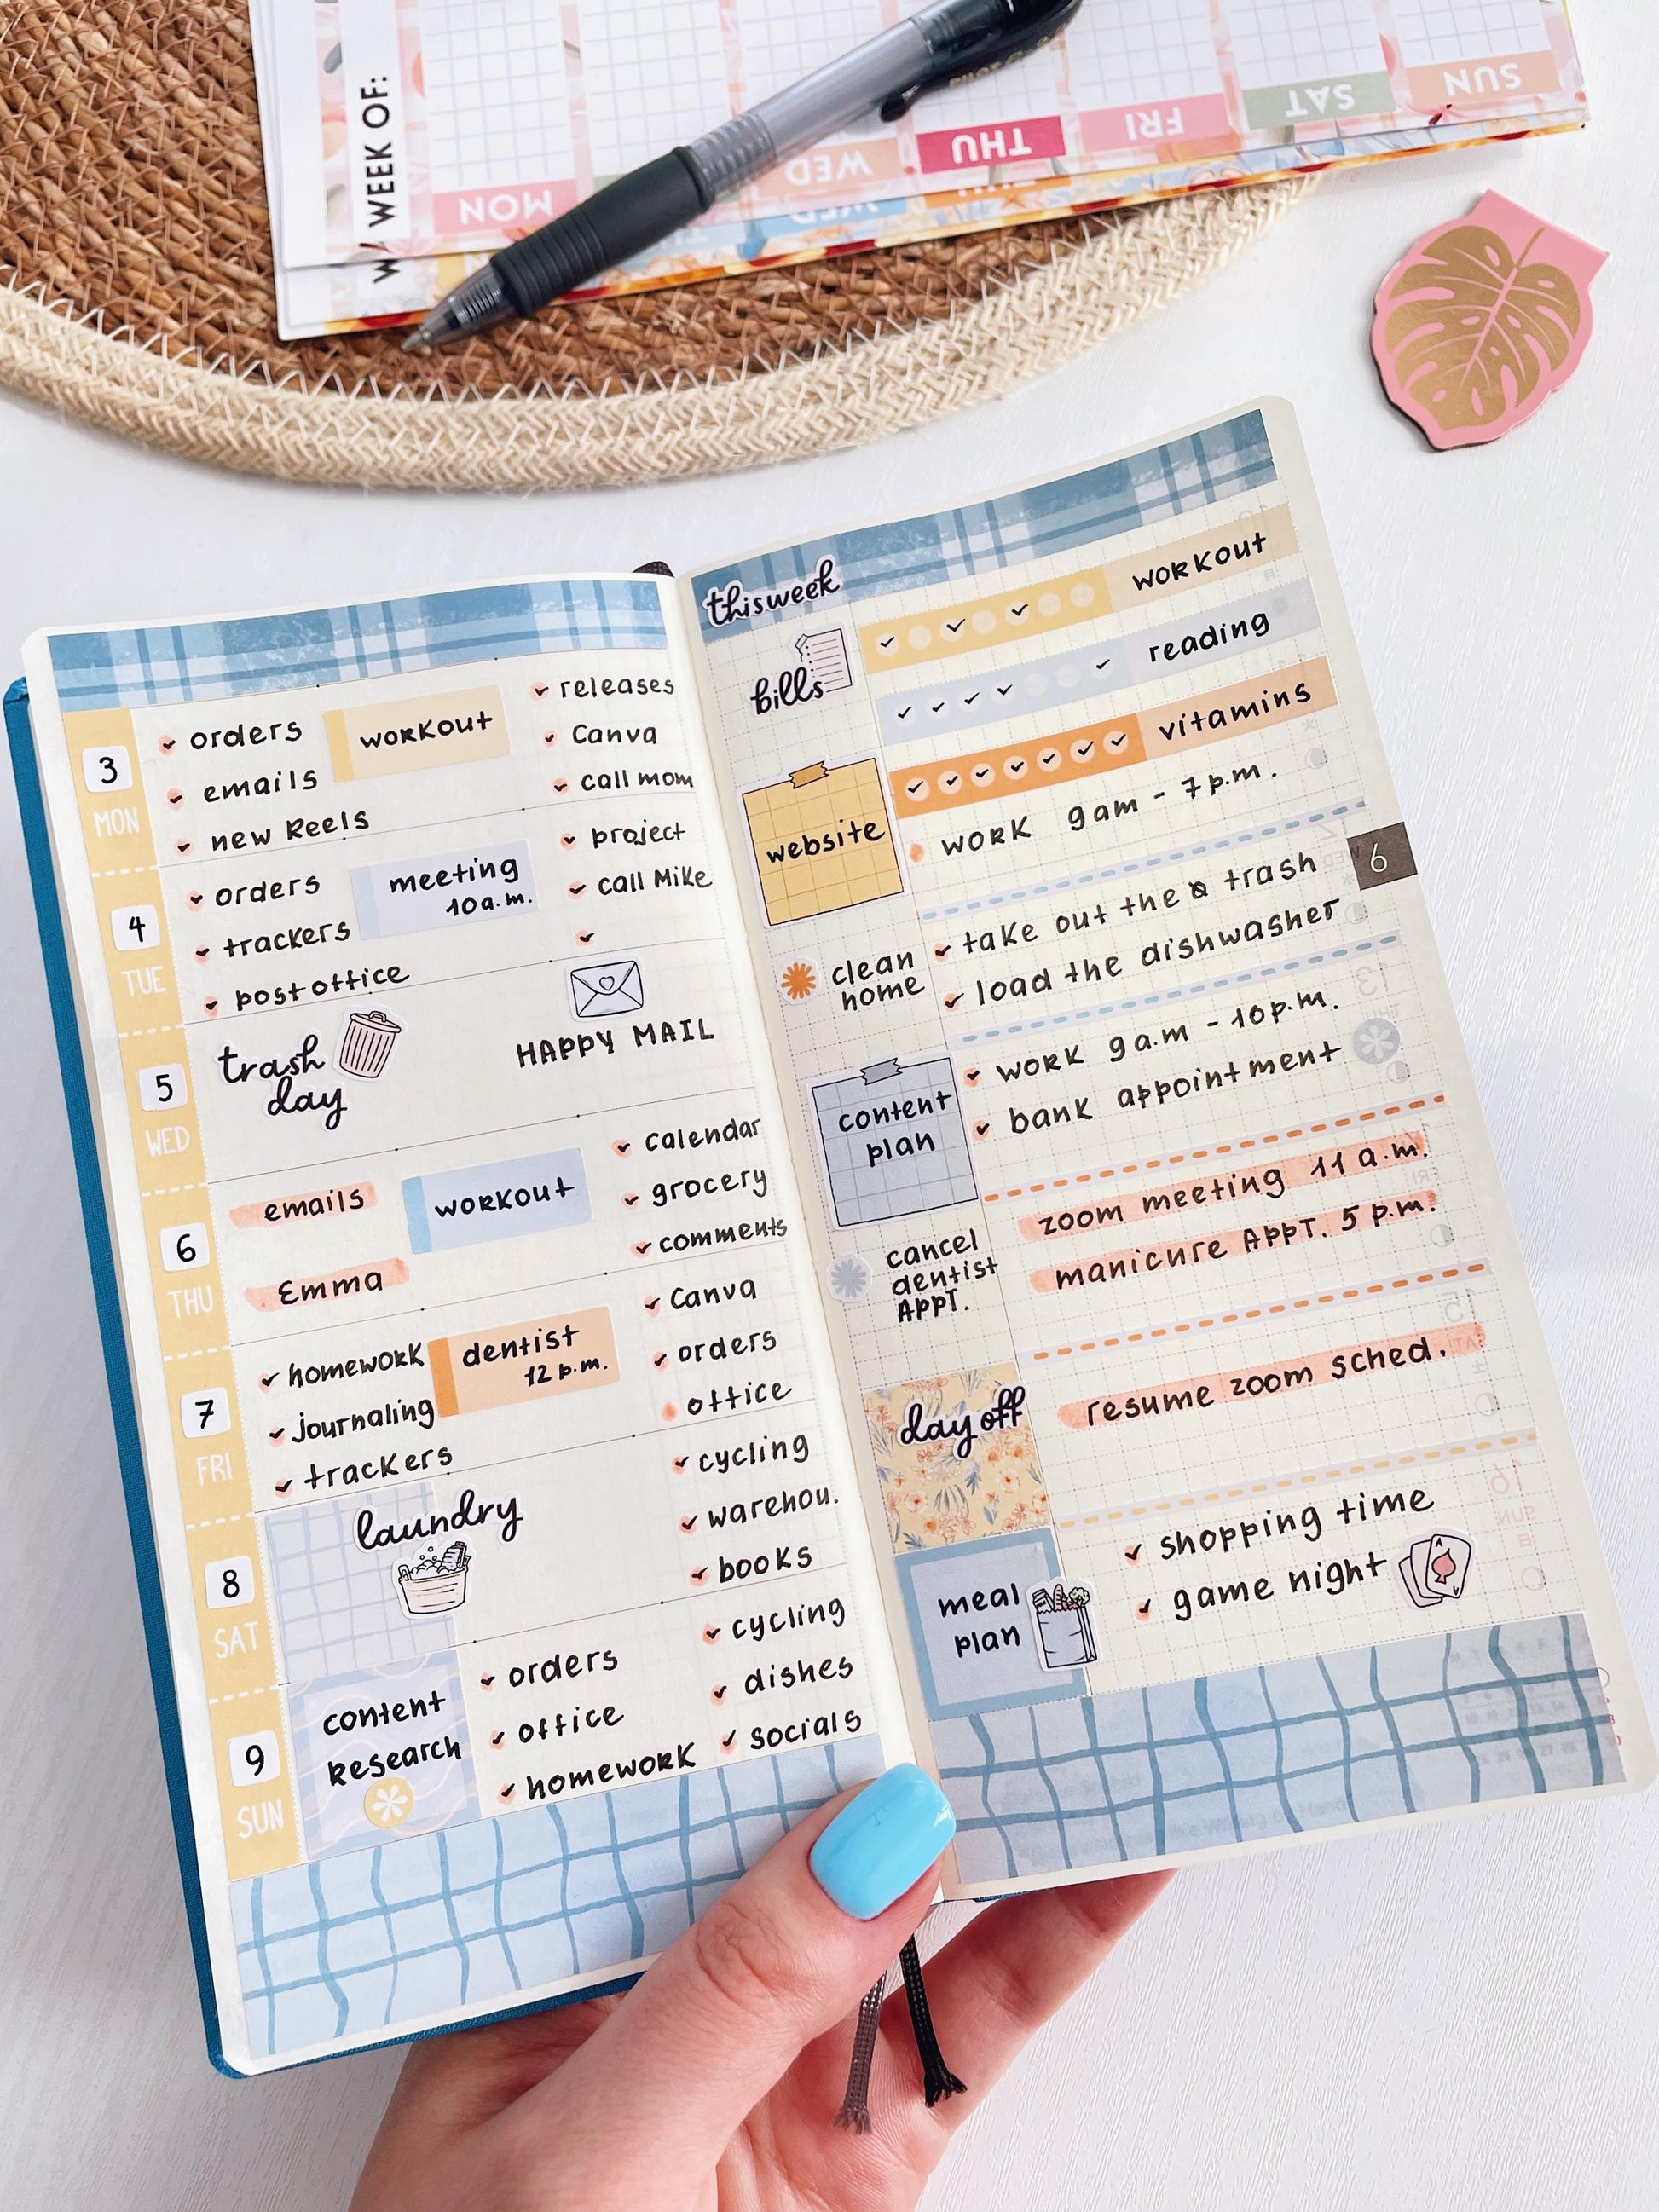 WEEK OF:
MON
WED
THU
FRI
SAT
SUN
WED
this week
workout
reading
vitamins
bills
website
work 9am - 7p.m.
6
clean
home
take out the trash
load the dishwasher
work 9a.m - 10p.m.
bank appointment
content
plan
zoom meeting 11a.m.
manicure APPT. 5 p.m.
cancel
dentist
APPT.
resume zoom sched.
day off
shopping time
game night
meal
plan
3
MON
orders
emails
new Reels
workout
releases
Canva
call mom
4
TUE
orders
trackers
post office
meeting
10a.m.
project
call Mike
5
WED
trash
day
HAPPY MAIL
6
THU
emails
Emma
workout
calendar
grocery
comments
7
FRI
homework
journaling
trackers
dentist
12 p.m.
Canva
orders
office
8
SAT
laundry
cycling
warehou.
books
9
SUN
content
research
orders
office
homework
cycling
dishes
socials